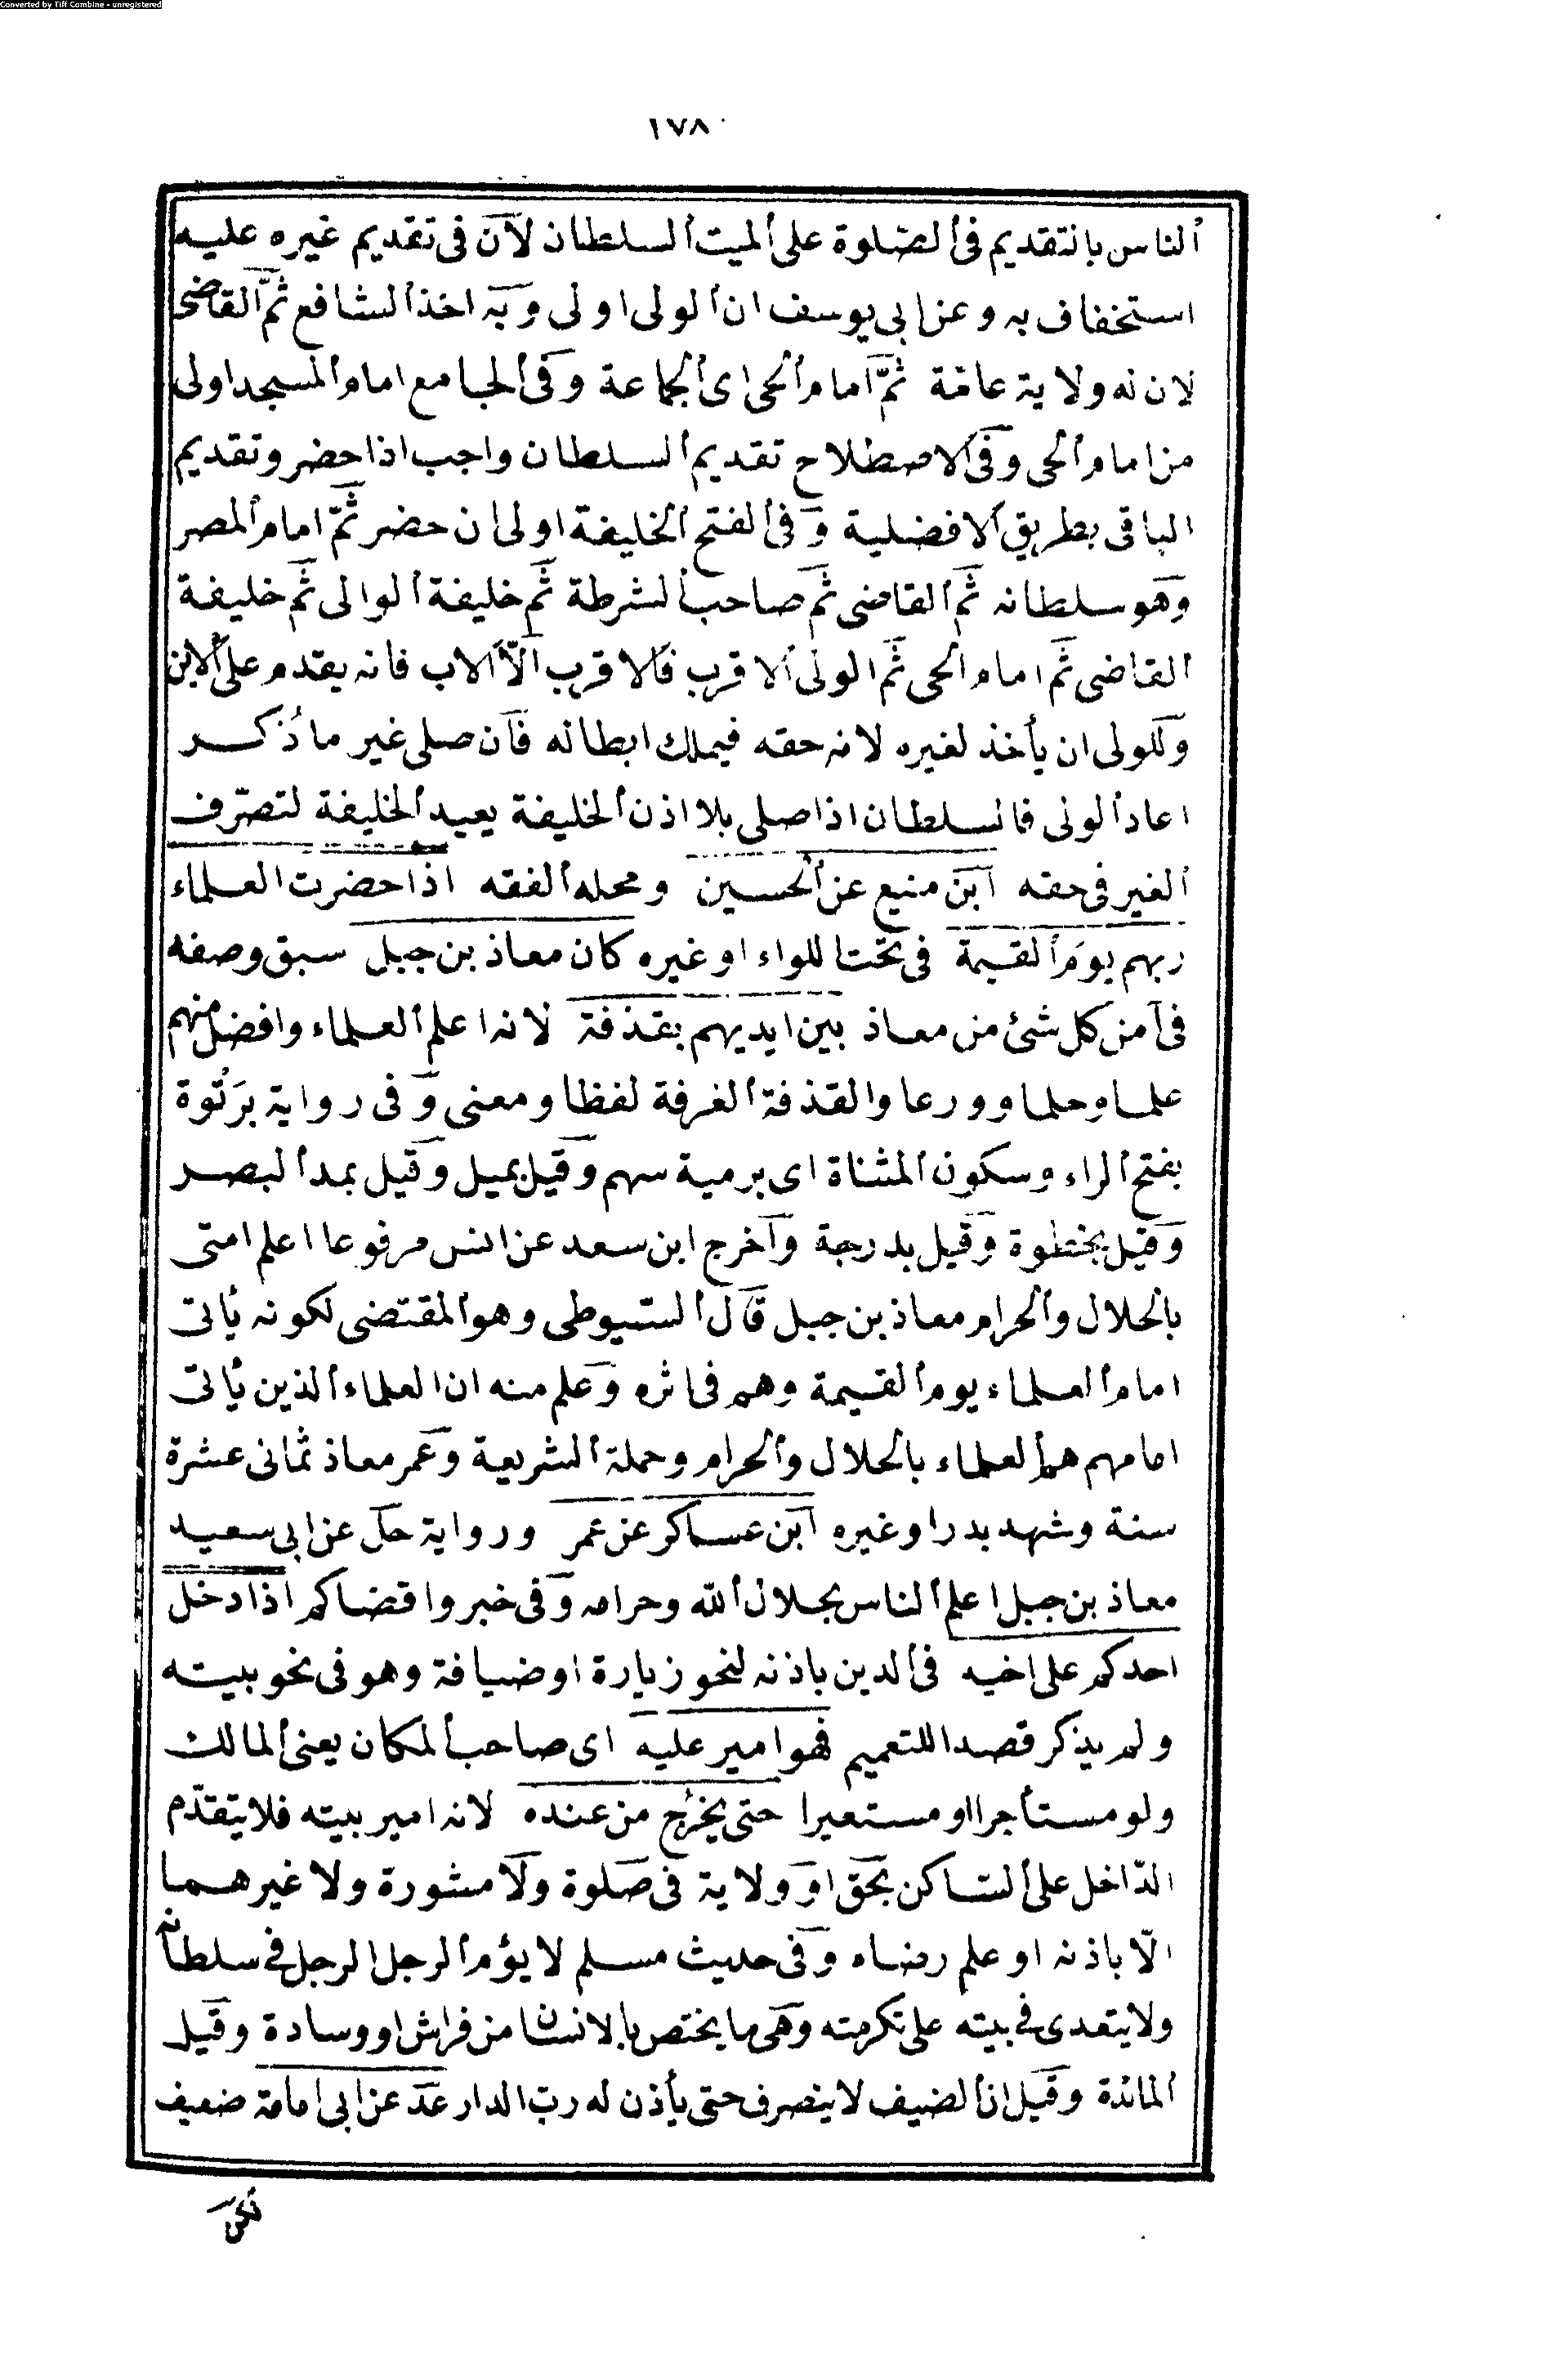 Converted by Tiff Combine - unregistered
١٧٨
الناس بالتقديم فى الصلوة على الميت السلطان لان فى تقديم غيره عليه
استخفاف به وعن ابى يوسف ان الولى اولى وبه اخذ الشافع ثمّ القاضى
لان له ولاية عامّة ثمّ امام الحى اى الجماعة وفى الجامع امام المسجد اولى
من امام الحى وفى الاصطلاح تقديم السلطان واجب اذا حضر وتقديم
الباقى بطريق الافضلية وفى الفتح الخليفة اولى ان حضر ثمّ امام المصر
وهو سلطانه ثم القاضى ثم صاحب الشرطة ثم خليفة الوالى ثم خليفة
القاضى ثم امام الحى ثم الولى الاقرب فالاقرب الّا الاب فانه يقدم على الابن
وللولى ان يأخذ لغيره لانه حقه فيملك ابطاله فان صلى غير ما ذُكر
اعاد الولى فالسلطان اذا صلى بلا اذن الخليفة يعيد الخليفة لتصرّف
الغير فى حقه ابن منيع عن الحسين ومحله الفقه اذا حضرت العلماء
ربهم يوم القيمة فى تحت اللواء او غيره كان معاذ بن جبل سبق وصفه
فى آمن كل شئ من معاذ بين ايديهم بقذفة لانه اعلم العلماء وافضل منهم
علما وحلما وورعا والقذفة الغرفة لفظا ومعنى وفى رواية برَتْوة
بفتح الراء وسكون المثناة اى برمية سهم وقيل بميل وقيل بمد البصر
وقيل بخطوة وقيل بدرجة واخرج ابن سعد عن انس مرفوعا اعلم امتى
بالحلال والحرام معاذ بن جبل قال السّيوطى وهو المقتضى لكونه يأتى
امام العلماء يوم القيمة وهم فى اثره وعلم منه ان العلماء الذين يأتى
امامهم هم العلماء بالحلال والحرام وحملة الشريعة وعمر معاذ ثمانى عشرة
سنة وشهد بدرا وغيره ابن عساكر عن عمر ورواية حل عن ابى سعيد
معاذ بن جبل اعلم الناس بحلال الله وحرامه وفى خبر واقضاكم اذا دخل
احدكم على اخيه فى الدين باذنه لنحو زيارة او ضيافة وهو فى نحو بيته
ولم يذكر قصدا للتعميم فهو امير عليه اى صاحب المكان يعنى المالك
ولو مستأجرا او مستعيرا حتى يخرُج من عنده لانه امير بيته فلا يتقدّم
الدّاخل على السّاكن بحق او ولاية فى صلوة ولا مشورة ولا غيرهما
الّا باذنه او علم رضاه وفى حديث مسلم لا يؤم الرجل الرجل فى سلطانه
ولا يتعدى فى بيته على تكرمته وهى ما يختص بالانسان من فراش او وسادة وقيل
المائدة وقيل ان الضيف لا ينصرف حتى يأذن له ربّ الدار عد عن ابى امامة ضعيف